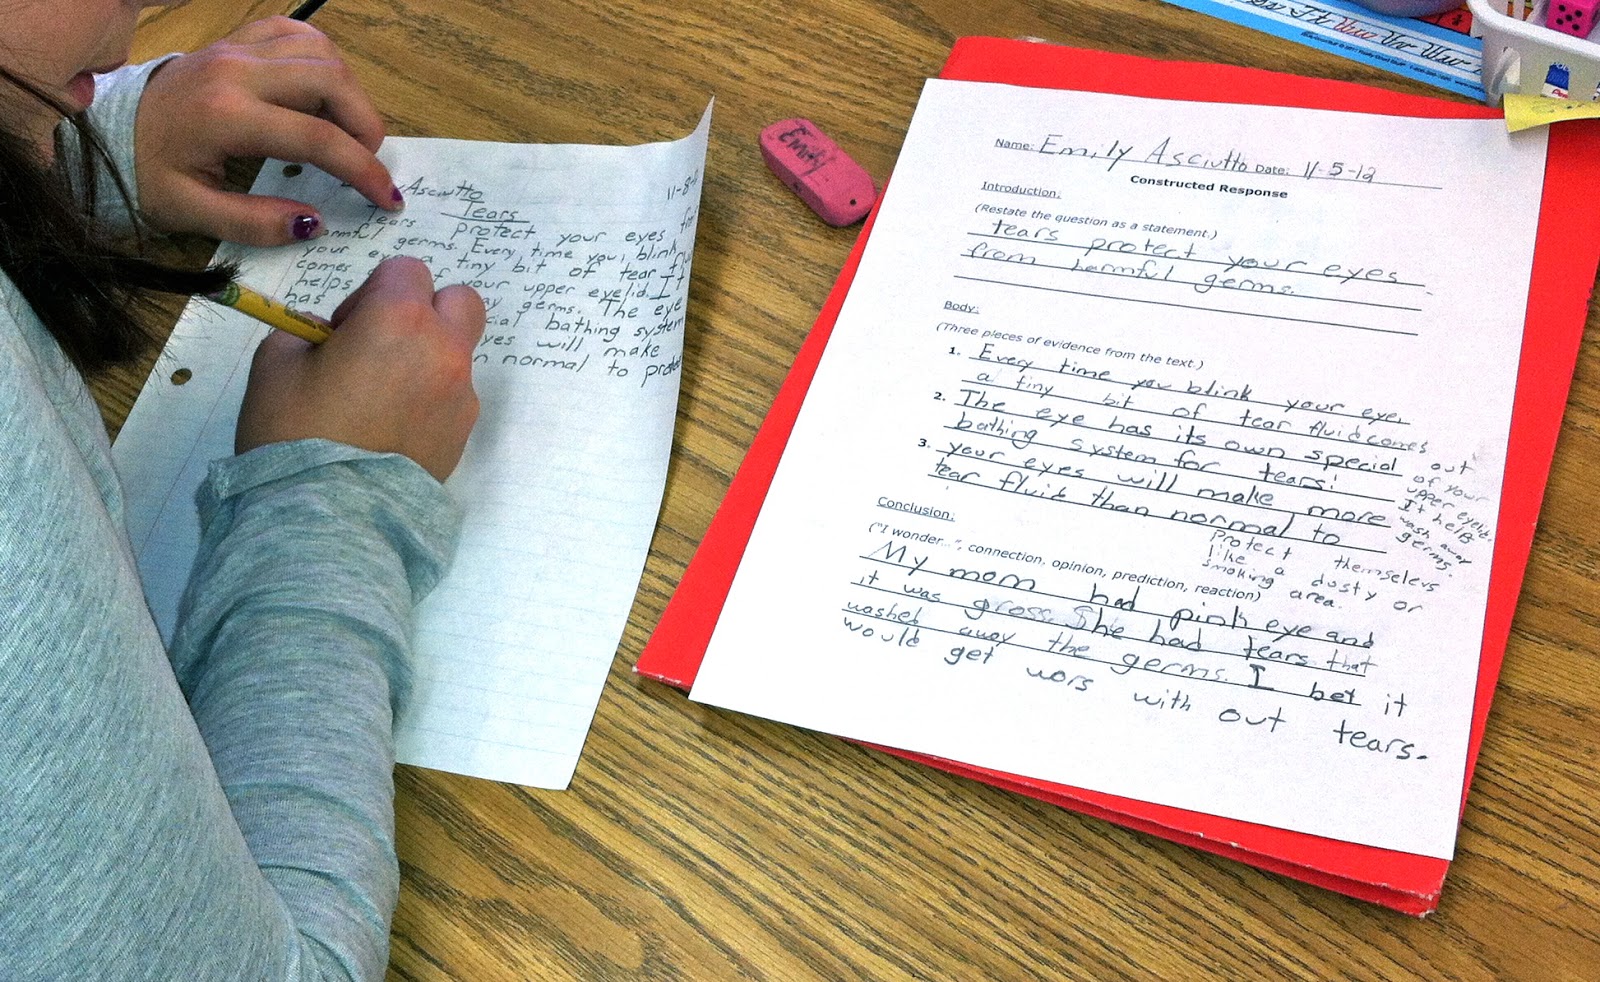 Asciutto
11-8-
Tears
Tears protect your eyes
harmful germs. Every time you blink
your a tiny bit of tear
comes of your upper eyelid. It
helps germs. The eye
has cial bathing system
yes will make
n normal to protec
Emily
Name: Emily Asciutto Date: 11-5-12
Constructed Response
Introduction:
(Restate the question as a statement.)
tears protect your eyes
from harmful germs.
Body:
(Three pieces of evidence from the text.)
1. Every time you blink your eye,
a tiny bit of tear fluid comes
out
of your
upper eyelid.
It helps
wash away
germs.
2. The eye has its own special
bathing system for tears!
3. your eyes will make more
tear fluid than normal to
protect themselevs
like a dusty or
smoking area.
Conclusion:
("I wonder...", connection, opinion, prediction, reaction)
My mom had pink eye and
it was gross. She had tears that
washed away the germs. I bet it
would get wors with out tears.